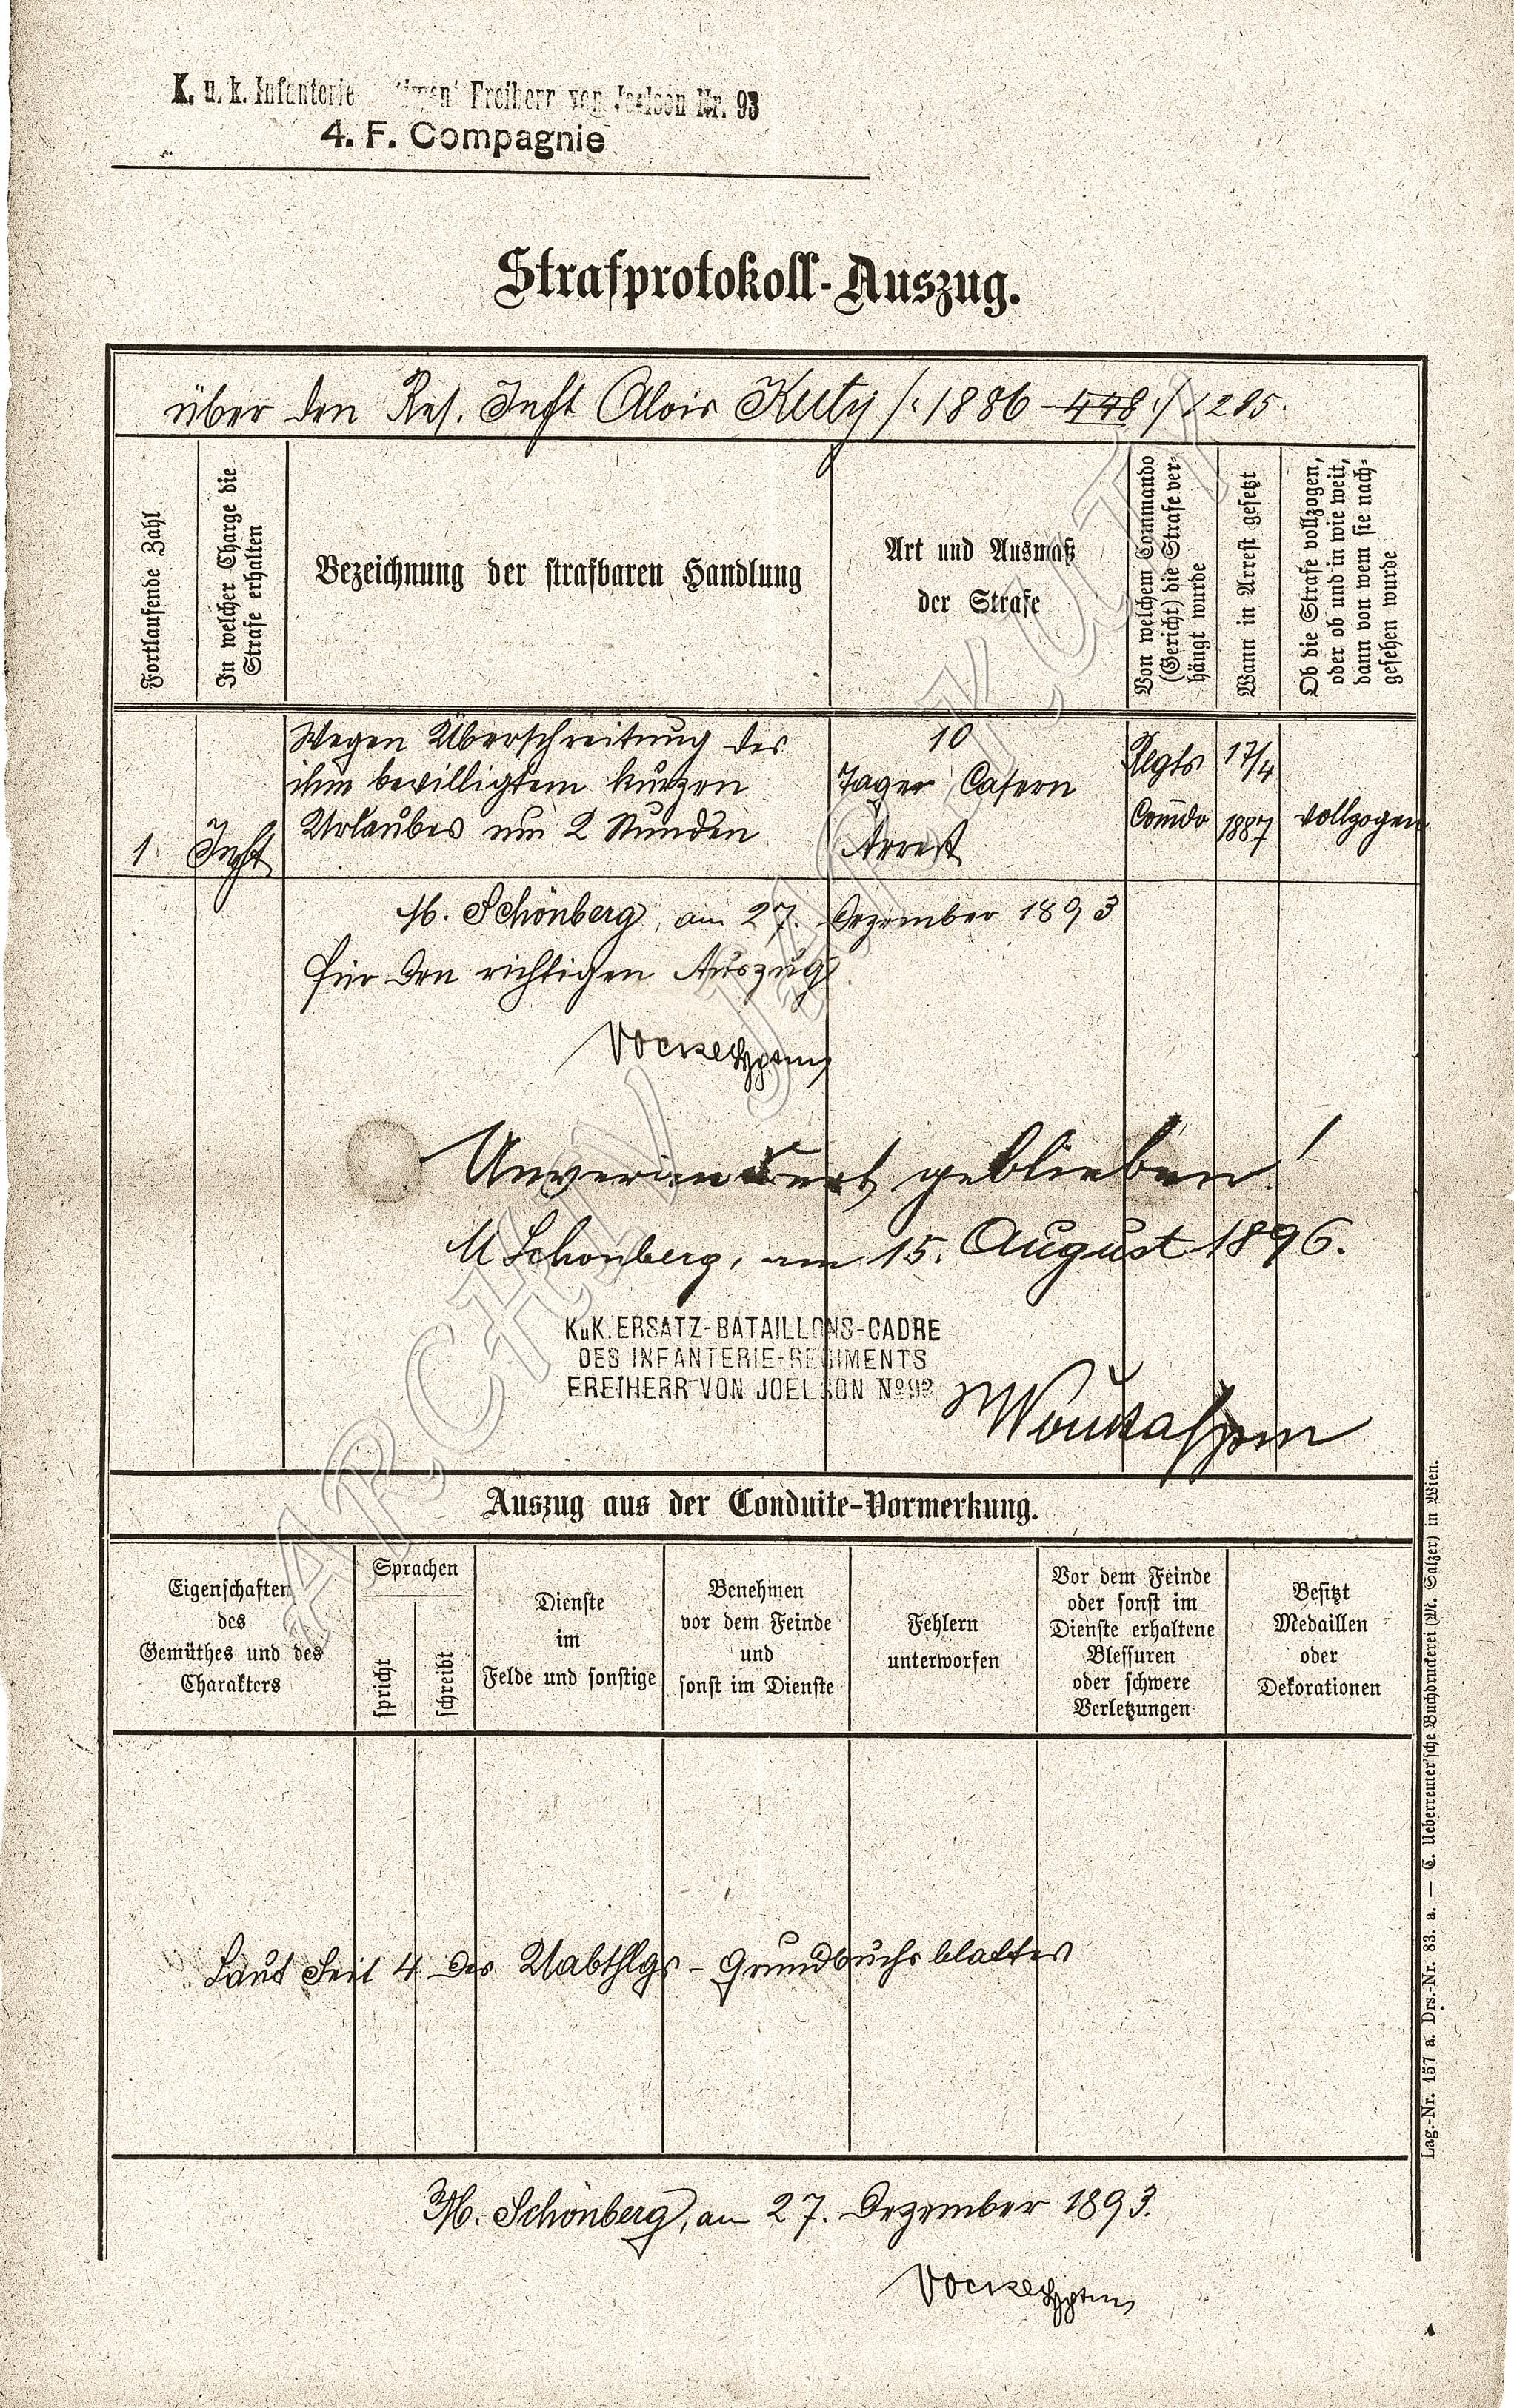 K. u. k. Infanterie- Freiherr von Joelson Nr. 93
4. F. Compagnie
Strafprotokoll-Auszug.
über den Res. Inft Alois Kuty /: 1886 - 448 :/ 1285.
Fortlaufende Zahl
In welcher Charge die
Strafe erhalten
Bezeichnung der strafbaren Handlung
Art und Ausmaß
der Strafe
Von welchem Commando
(Gericht) die Strafe ver-
hängt wurde
Wann in Arrest gesetzt
Ob die Strafe vollzogen,
oder ob und in wie weit,
dann von wem sie nach-
gesehen wurde
1. Inft
Wegen Überschreitung des
ihm bewilligtem kurzen
Urlaubes um 2 Stunden
10
Tager Casern
Arrest
Regts
Comdo
17/4
1887
vollzogen
M. Schönberg, am 27. Dezember 1893
für den richtigen Auszug
Unverändert geblieben!
M Schönberg, am 15. August 1896.
K.u.K. ERSATZ-BATAILLONS-CADRE
DES INFANTERIE-REGIMENTS
FREIHERR VON JOELSON No 93
Auszug aus der Conduite-Vormerkung.
Eigenschaften
des
Gemüthes und des
Charakters
Sprachen
spricht
schreibt
Dienste
im
Felde und sonstige
Benehmen
vor dem Feinde
und
sonst im Dienste
Fehlern
unterworfen
Vor dem Feinde
oder sonst im
Dienste erhaltene
Blessuren
oder schwere
Verletzungen
Besitzt
Medaillen
oder
Dekorationen
Laut Seit 4 des Uabthlgs - Grundbuchsblattes
M. Schönberg, am 27. Dezember 1893.
Lag.-Nr. 157 a. Drs.-Nr. 83. a. — C. Ueberreuter'sche Buchdruckerei (M. Salzer) in Wien.
ARCHIV JAR. KUTÝ